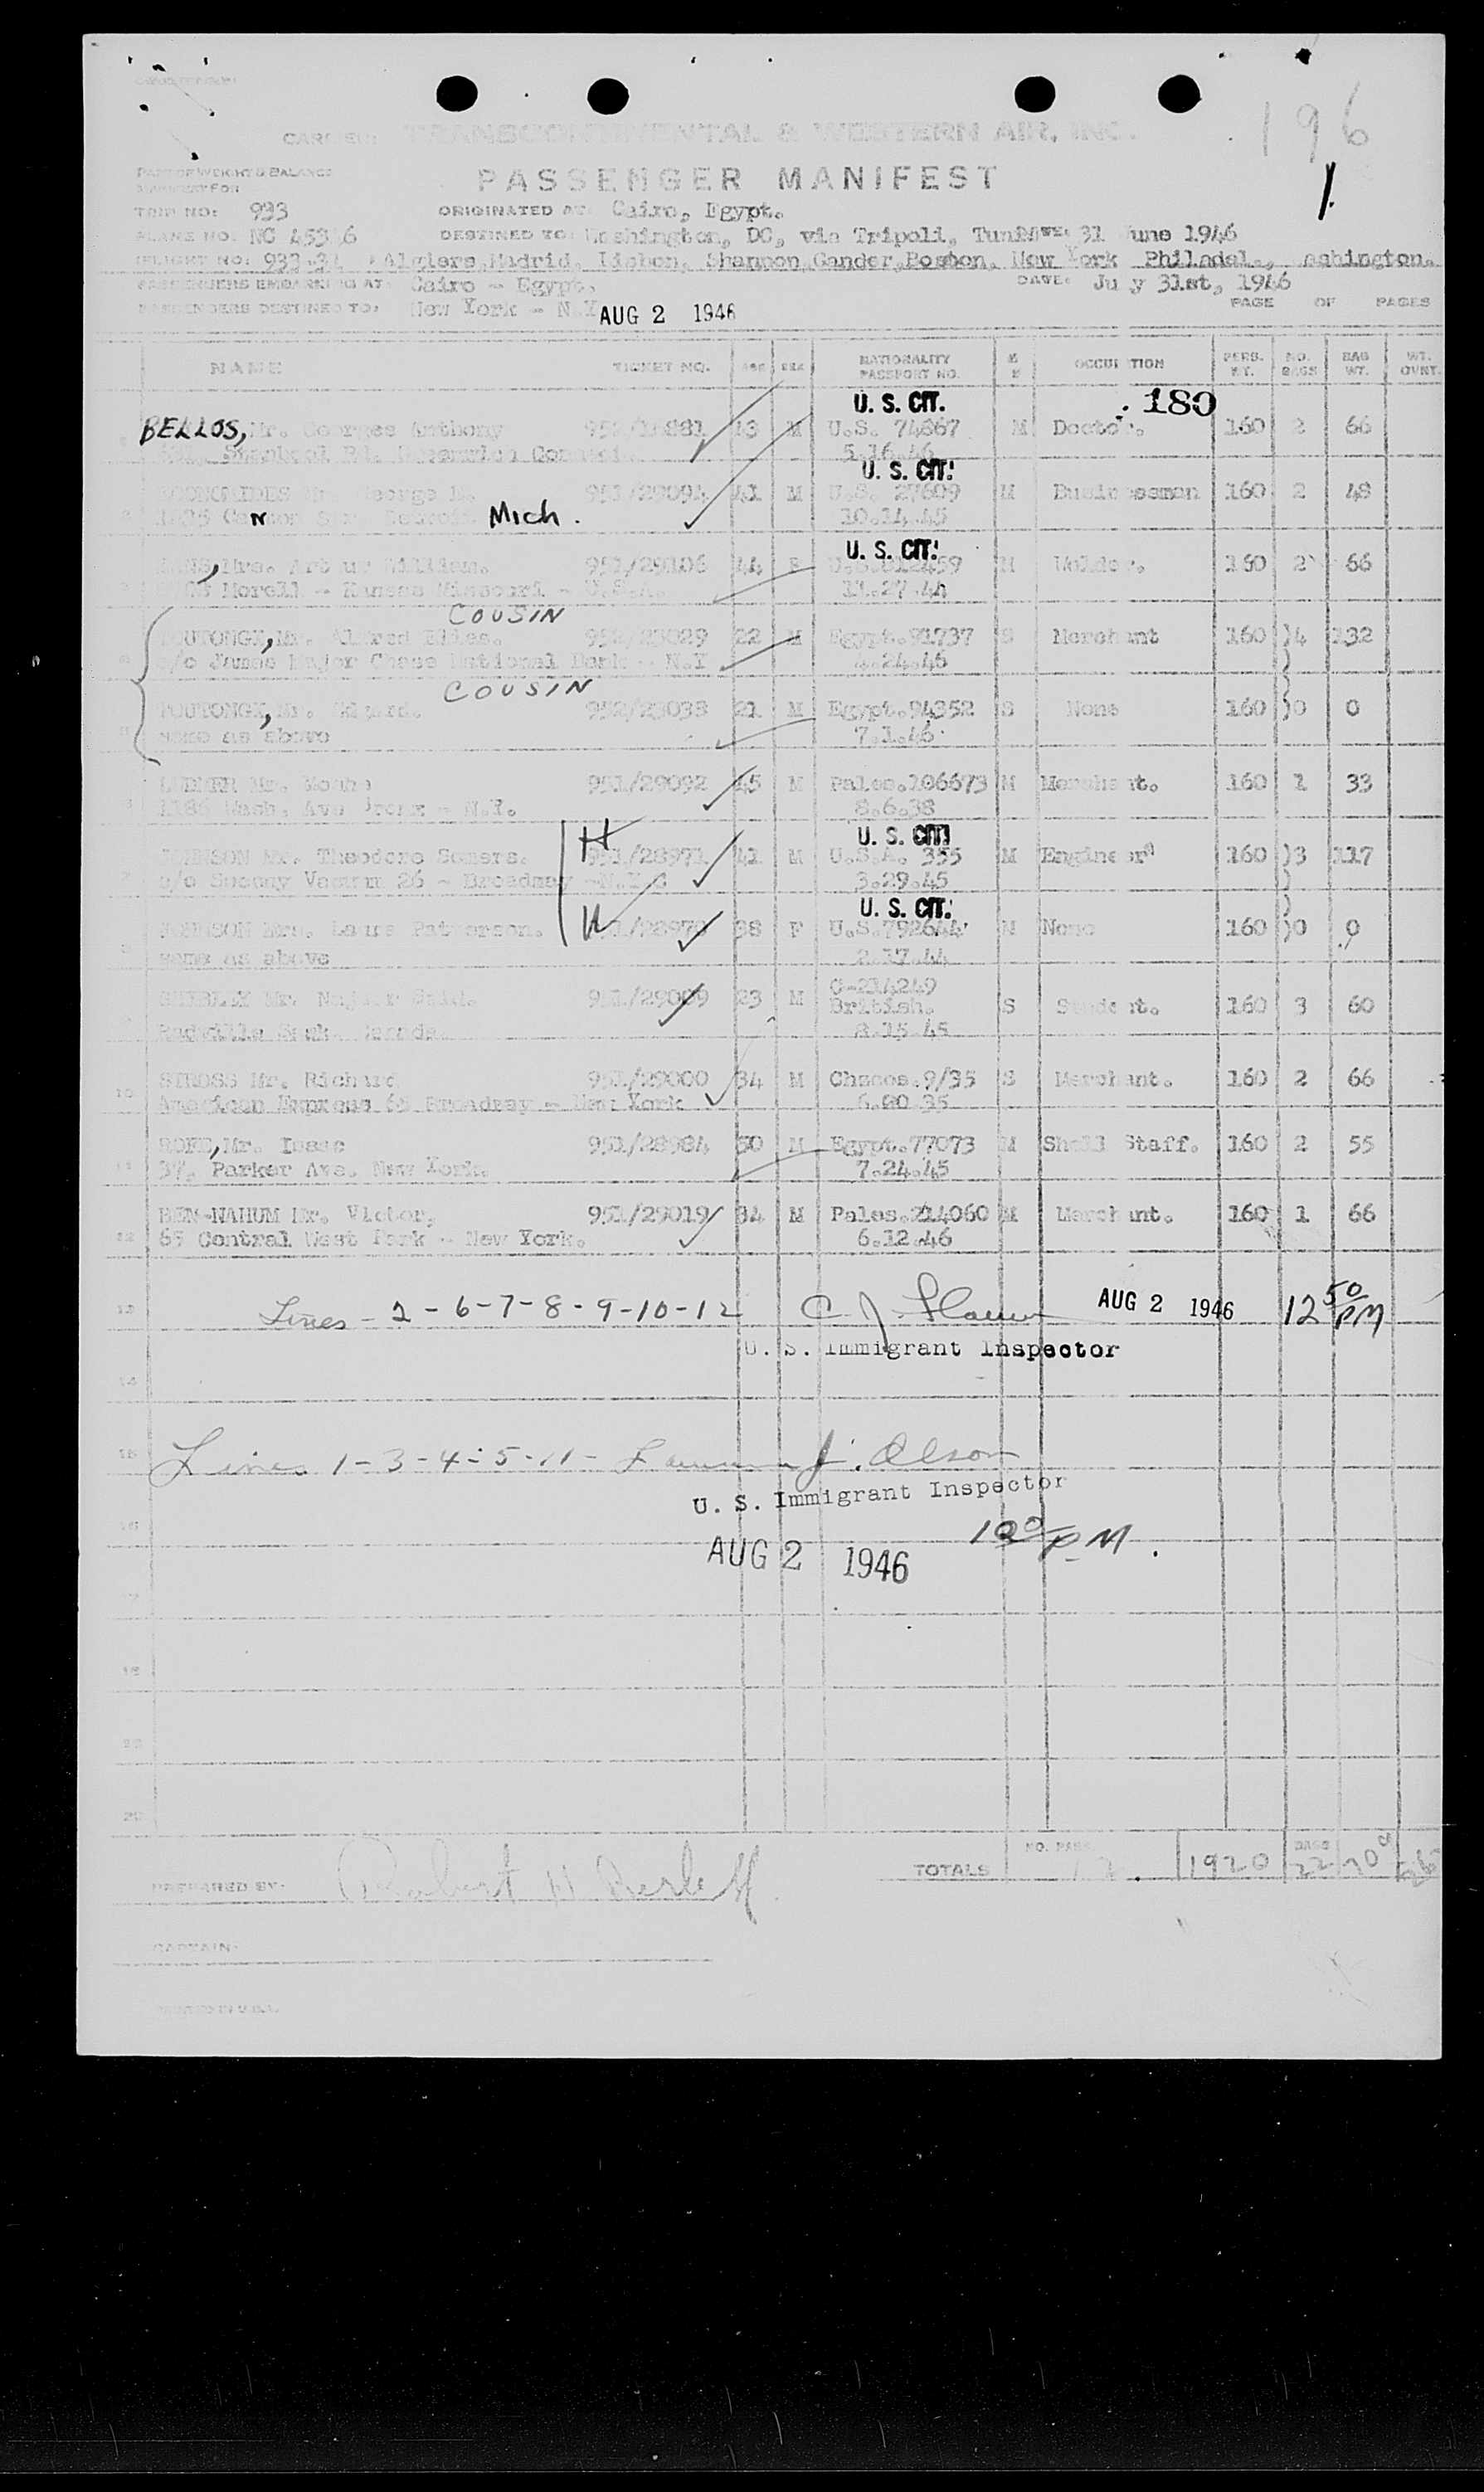 196
1.
CARRIER: TRANSCONTINENTAL & WESTERN AIR, INC.
PASSENGER MANIFEST
PART OF WEIGHT & BALANCE
MANIFEST FOR
TRIP NO: 933 ORIGINATED AT: Cairo, Egypt.
PLANE NO. NC 45346 DESTINED TO: Washington, DC, via Tripoli, Tunis 31 June 1946
FLIGHT NO: Algiers, Madrid, Lisbon, Shannon, Gander, Boston, New York Philadel., ashington.
PASSENGERS EMBARKING AT: Cairo - Egypt. DATE: Ju y 31st, 1946
PASSENGERS DESTINED TO: New York - N.Y AUG 2 1946 PAGE OF PAGES
NAME TICKET NO. AGE SEX NATIONALITY PASSPORT NO. M S OCCUPATION PERS. WT. NO. BAGS BAG WT. WT. OVNT.
U. S. CIT. 180
BELLOS, Mr. Georges Anthony M U.S. 74867 M Doctor. 160 2 66
5.16.46
U. S. CIT.
Mr. George 951/29094 41 M U.S. 27609 M Businessman 160 2 48
Canton Detroit Mich. 10.14.45
U. S. CIT.
, Mrs. Arthur William. 951/29106 44 F M Welder. 160 2 66
Morell - Kansas Missouri - U.S.A. 11.27.44
COUSIN
, Mr. Alfred Elias. 952/23029 22 M Egypt. 91737 S Merchant 160 )4 132
c/o James Major Chase National Bank - N.Y 4.24.46
COUSIN
, Mr. 952/23038 21 M Egypt. 94352 S None 160 )0 0
same as above 7.1.46
Mr. 951/29092 45 M Pales. 106673 M Merchant. 160 1 33
1186 Wash. Ave Bronx - N.Y. 8.6.38
U. S. CIT.
JOHNSON Mr. Theodore Somers. H 951/28971 41 M U.S.A. 355 M Engineer 160 )3 117
c/o Socony Vacuum 26 - Broadway - N.Y.C 3.29.45
U. S. CIT.
JOHNSON Mrs. Laura Patterson. W 951/28970 38 F U.S. 792644 M None 160 )0 0
same as above 2.17.44
SHIBLEY Mr. Said. 951/29009 23 M C-214249 British. S Student. 160 3 60
Radville Sask. Canada. 8.15.45
10 STROSS Mr. Richard 951/29000 34 M Chzcos. 9/35 S Merchant. 160 2 66
American Express 65 Broadway - New York 6.20.35
11 ROFE, Mr. Isaac 951/28984 50 M Egypt. 77073 M Shell Staff. 160 2 55
37, Parker Ave. New York. 7.24.45
12 BEN-NAHUM Mr. Victor, 951/29019 34 M Pales. 214060 M Merchant. 160 1 66
65 Central West Park - New York. 6.12.46
13 Lines - 2 - 6 - 7 - 8 - 9 - 10 - 12 C J. AUG 2 1946 12 50 PM
U. S. Immigrant Inspector
14
15 Lines 1 - 3 - 4 - 5 - 11 - J. Olson
U. S. Immigrant Inspector
16 1 00 PM.
AUG 2 1946
17
18
20
TOTALS NO. PASS 12. 1920 BAGS 22
PREPARED BY: Robert
CAPTAIN:
PRINTED IN U.S.A.